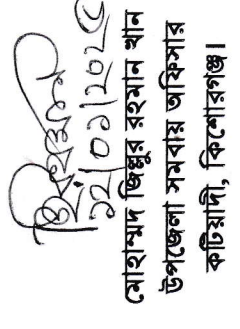 ১২/০১/২০২৫
মোহাম্মদ জিল্লুর রহমান খান
উপজেলা সমবায় অফিসার
কটিয়াদী, কিশোরগঞ্জ।